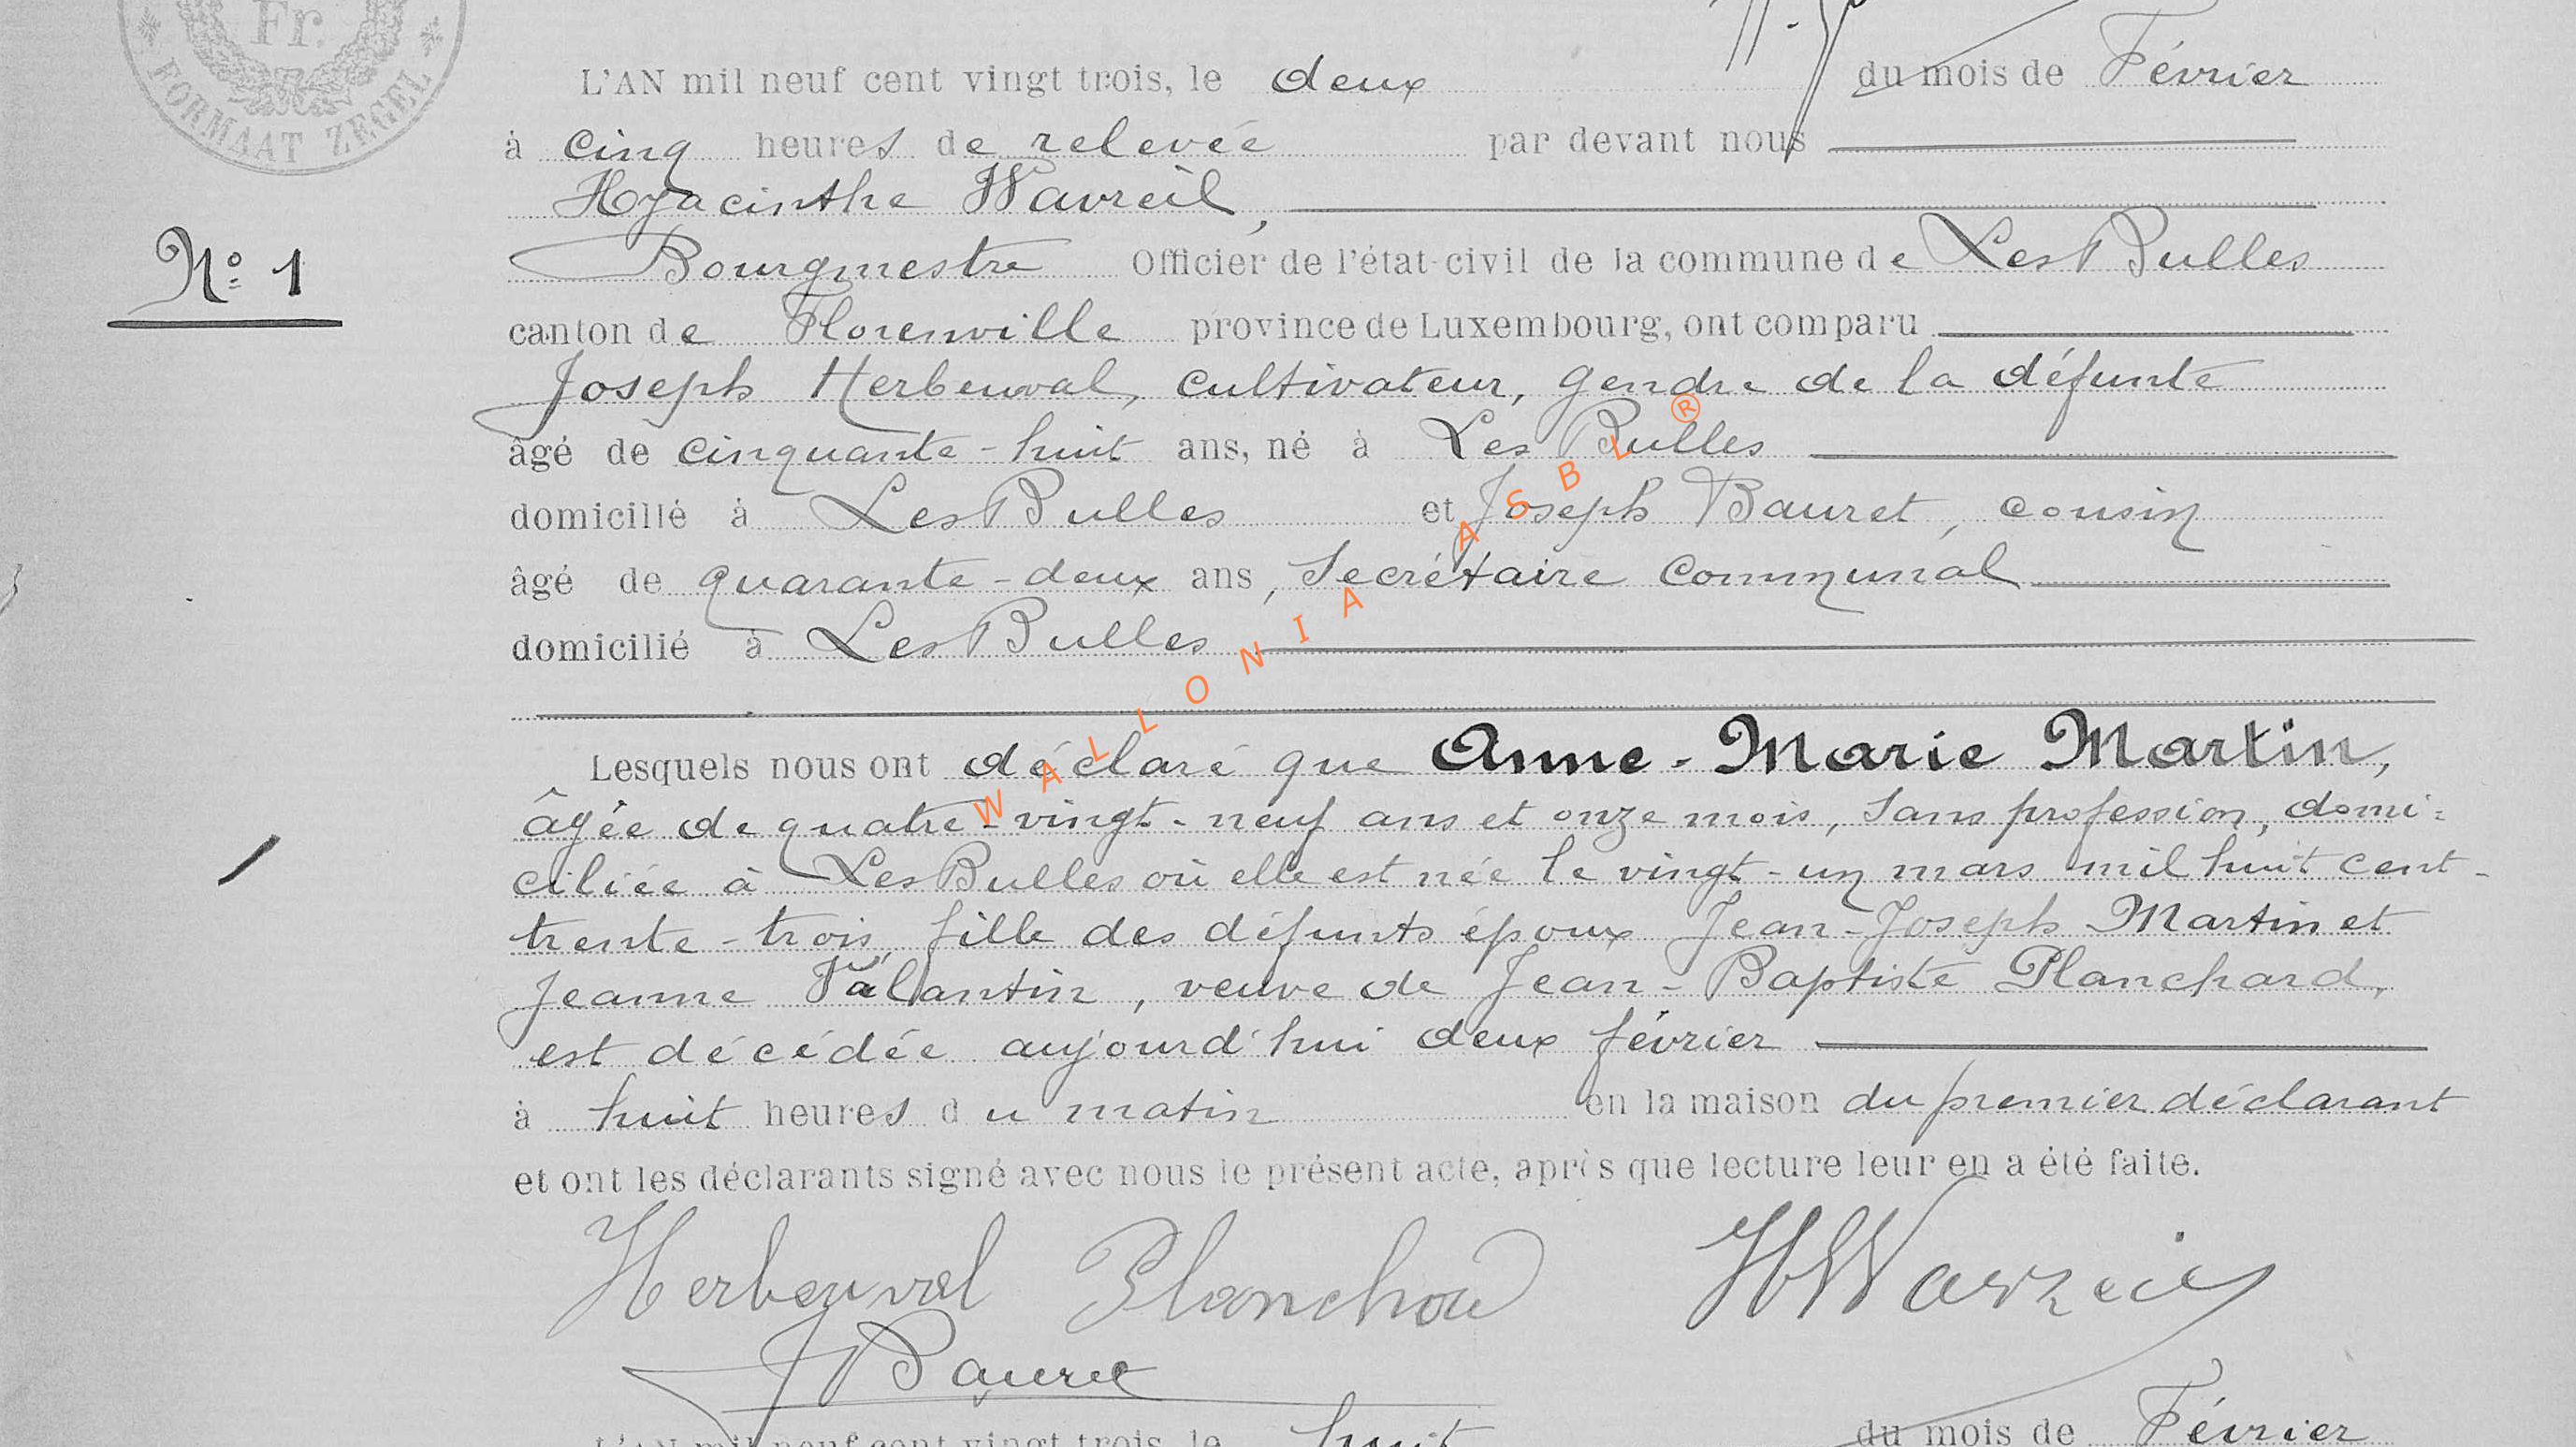 Fr.
FORMAAT ZEGEL
L'AN mil neuf cent vingt trois, le deux du mois de Février
à cinq heures de relevée par devant nous
Hyacinthe Wavreil,
Nº 1
Bourgmestre Officier de l'état-civil de la commune de Les Bulles
canton de Florenville province de Luxembourg, ont comparu
Joseph Herbeuval, cultivateur, gendre de la défunte
âgé de cinquante-huit ans, né à Les Bulles
domicilié à Les Bulles et Joseph Bauret, cousin
âgé de quarante-deux ans, Secrétaire Communal
domicilié à Les Bulles
Lesquels nous ont déclaré que Anne-Marie Martin,
âgée de quatre-vingt-neuf ans et onze mois, sans profession, domi=
ciliée à Les Bulles où elle est née le vingt-un mars mil huit cent-
trente-trois, fille des défunts époux Jean-Joseph Martin et
Jeanne Valantin, veuve de Jean-Baptiste Planchard,
est décédée aujourd'hui deux février
à huit heures du matin en la maison du premier déclarant
et ont les déclarants signé avec nous le présent acte, après que lecture leur en a été faite.
Herbeuval Planchard HWavreil
JBauret
L'AN mil neuf cent vingt trois, le huit du mois de Février
WALLONIA ASBL ®